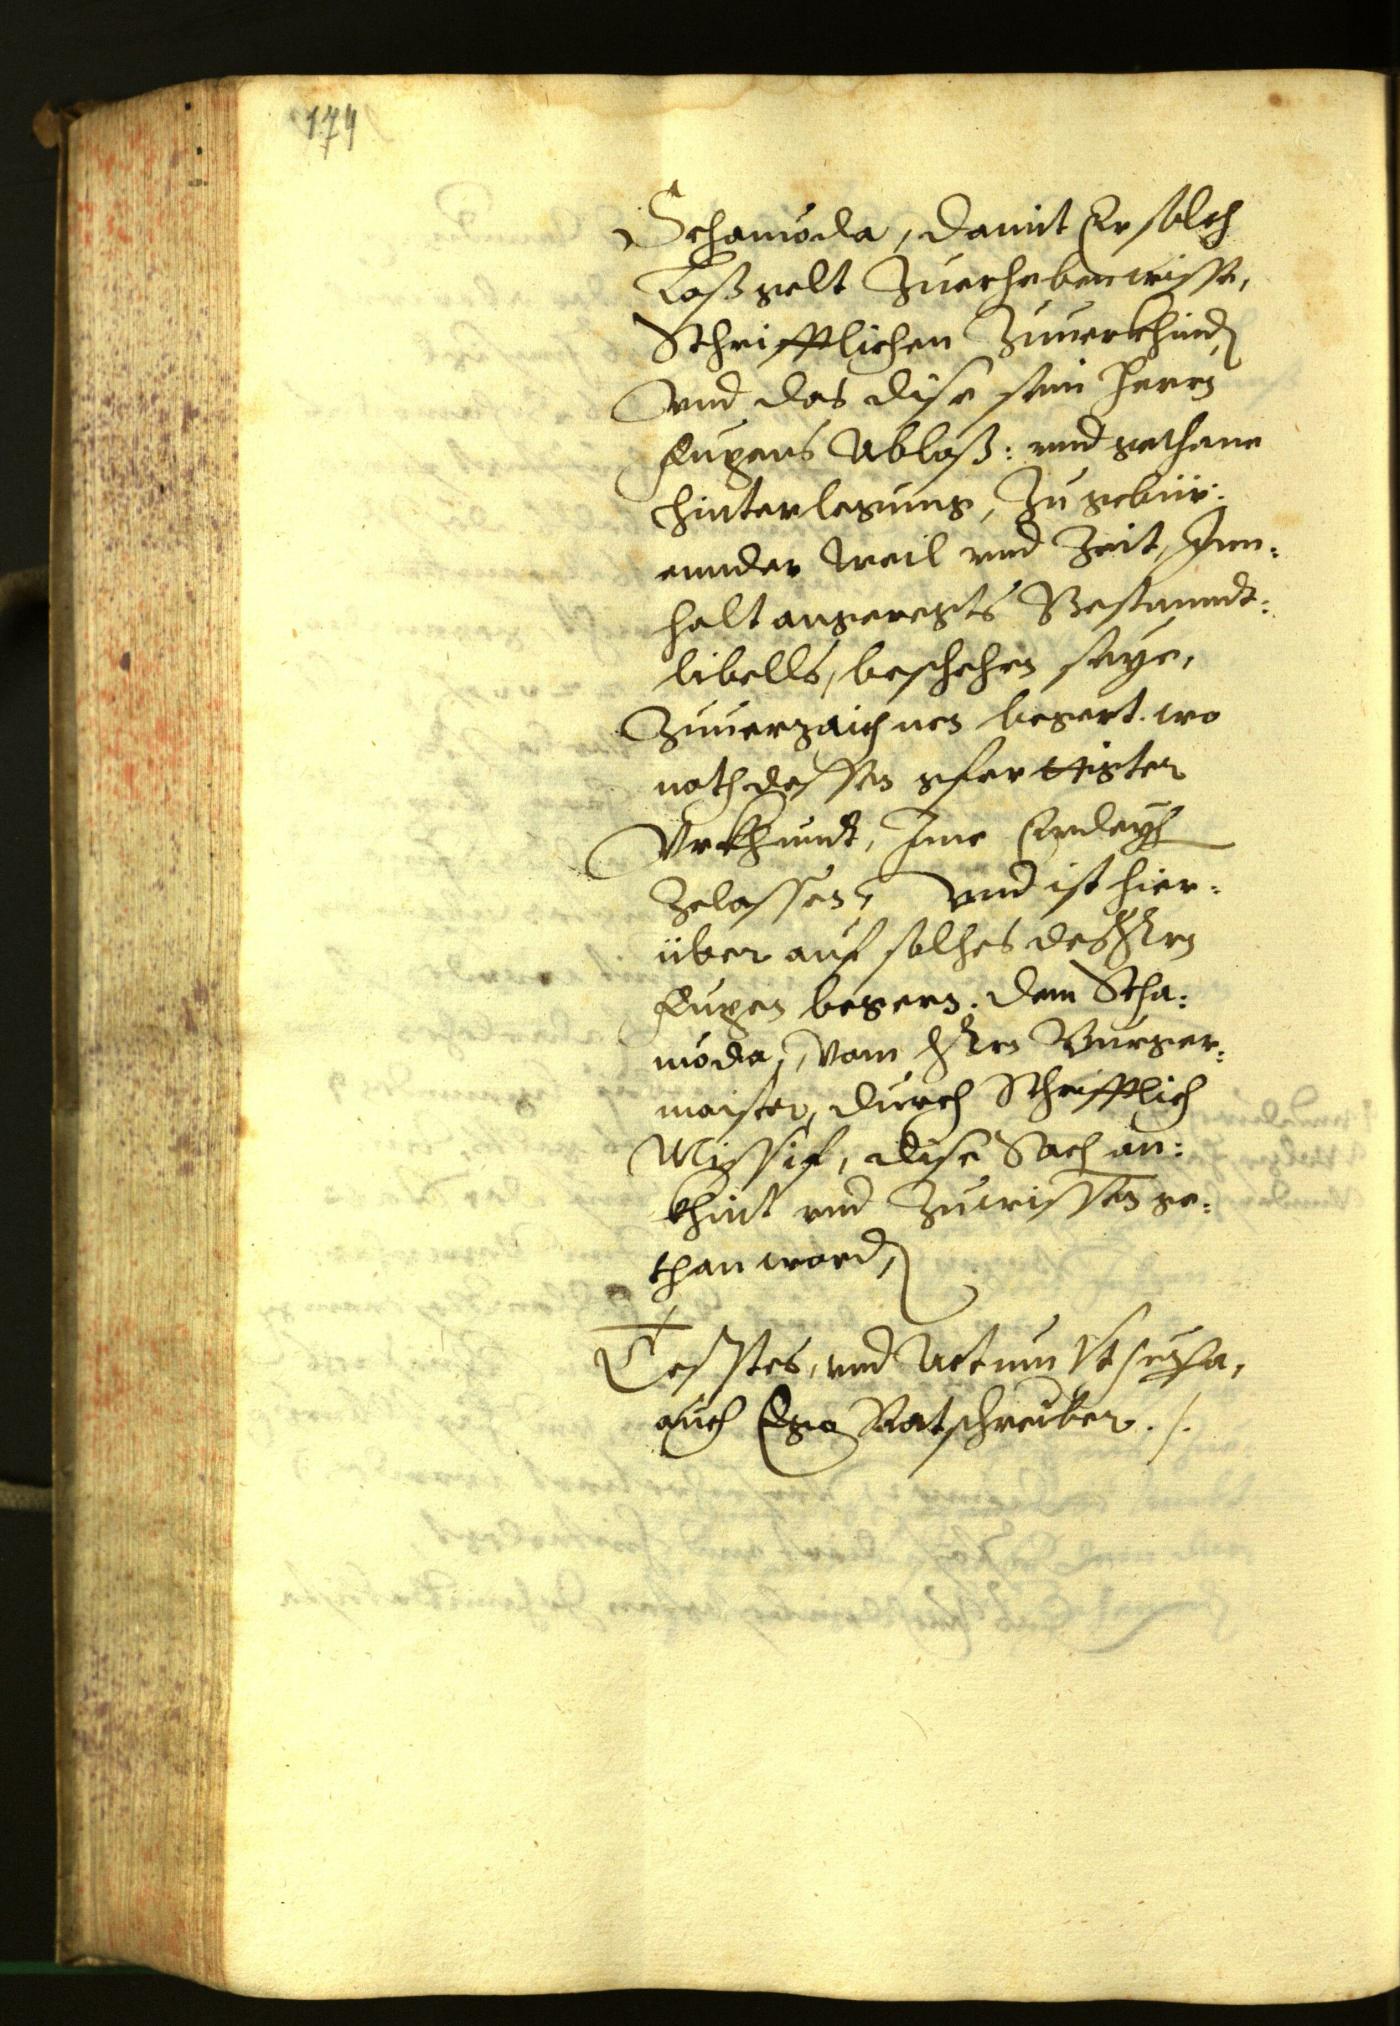 174
Schamoda, damit Er solch
Loßgelt Zuerheben wisse,
Schrifftlichen Zuuerkhind(en)
vnd das dise sein Herrn
Eugens Abloß: vnd gethane
hinterlegung, Zu gebür:
ennder Weil vnd Zeit, Inn:
halt angeregts Bestanndt:
libells, beschehen seye,
Zuuerzaichnen begert. wo
noth dessen gfertigter
Vrkhundt, Ime
Zelassen, vnd ist hier:
über auf solhes des Hrn
Eugen begern: dem Scha:
moda, vom Hrn Burger:
maister, durch Schrifftlich
Missif, dise Sach an:
khint vnd Zuwissen ge:
than word(en)
Testes, vnd Actum Vt supra,
auch Ego Ratschreiber ./.